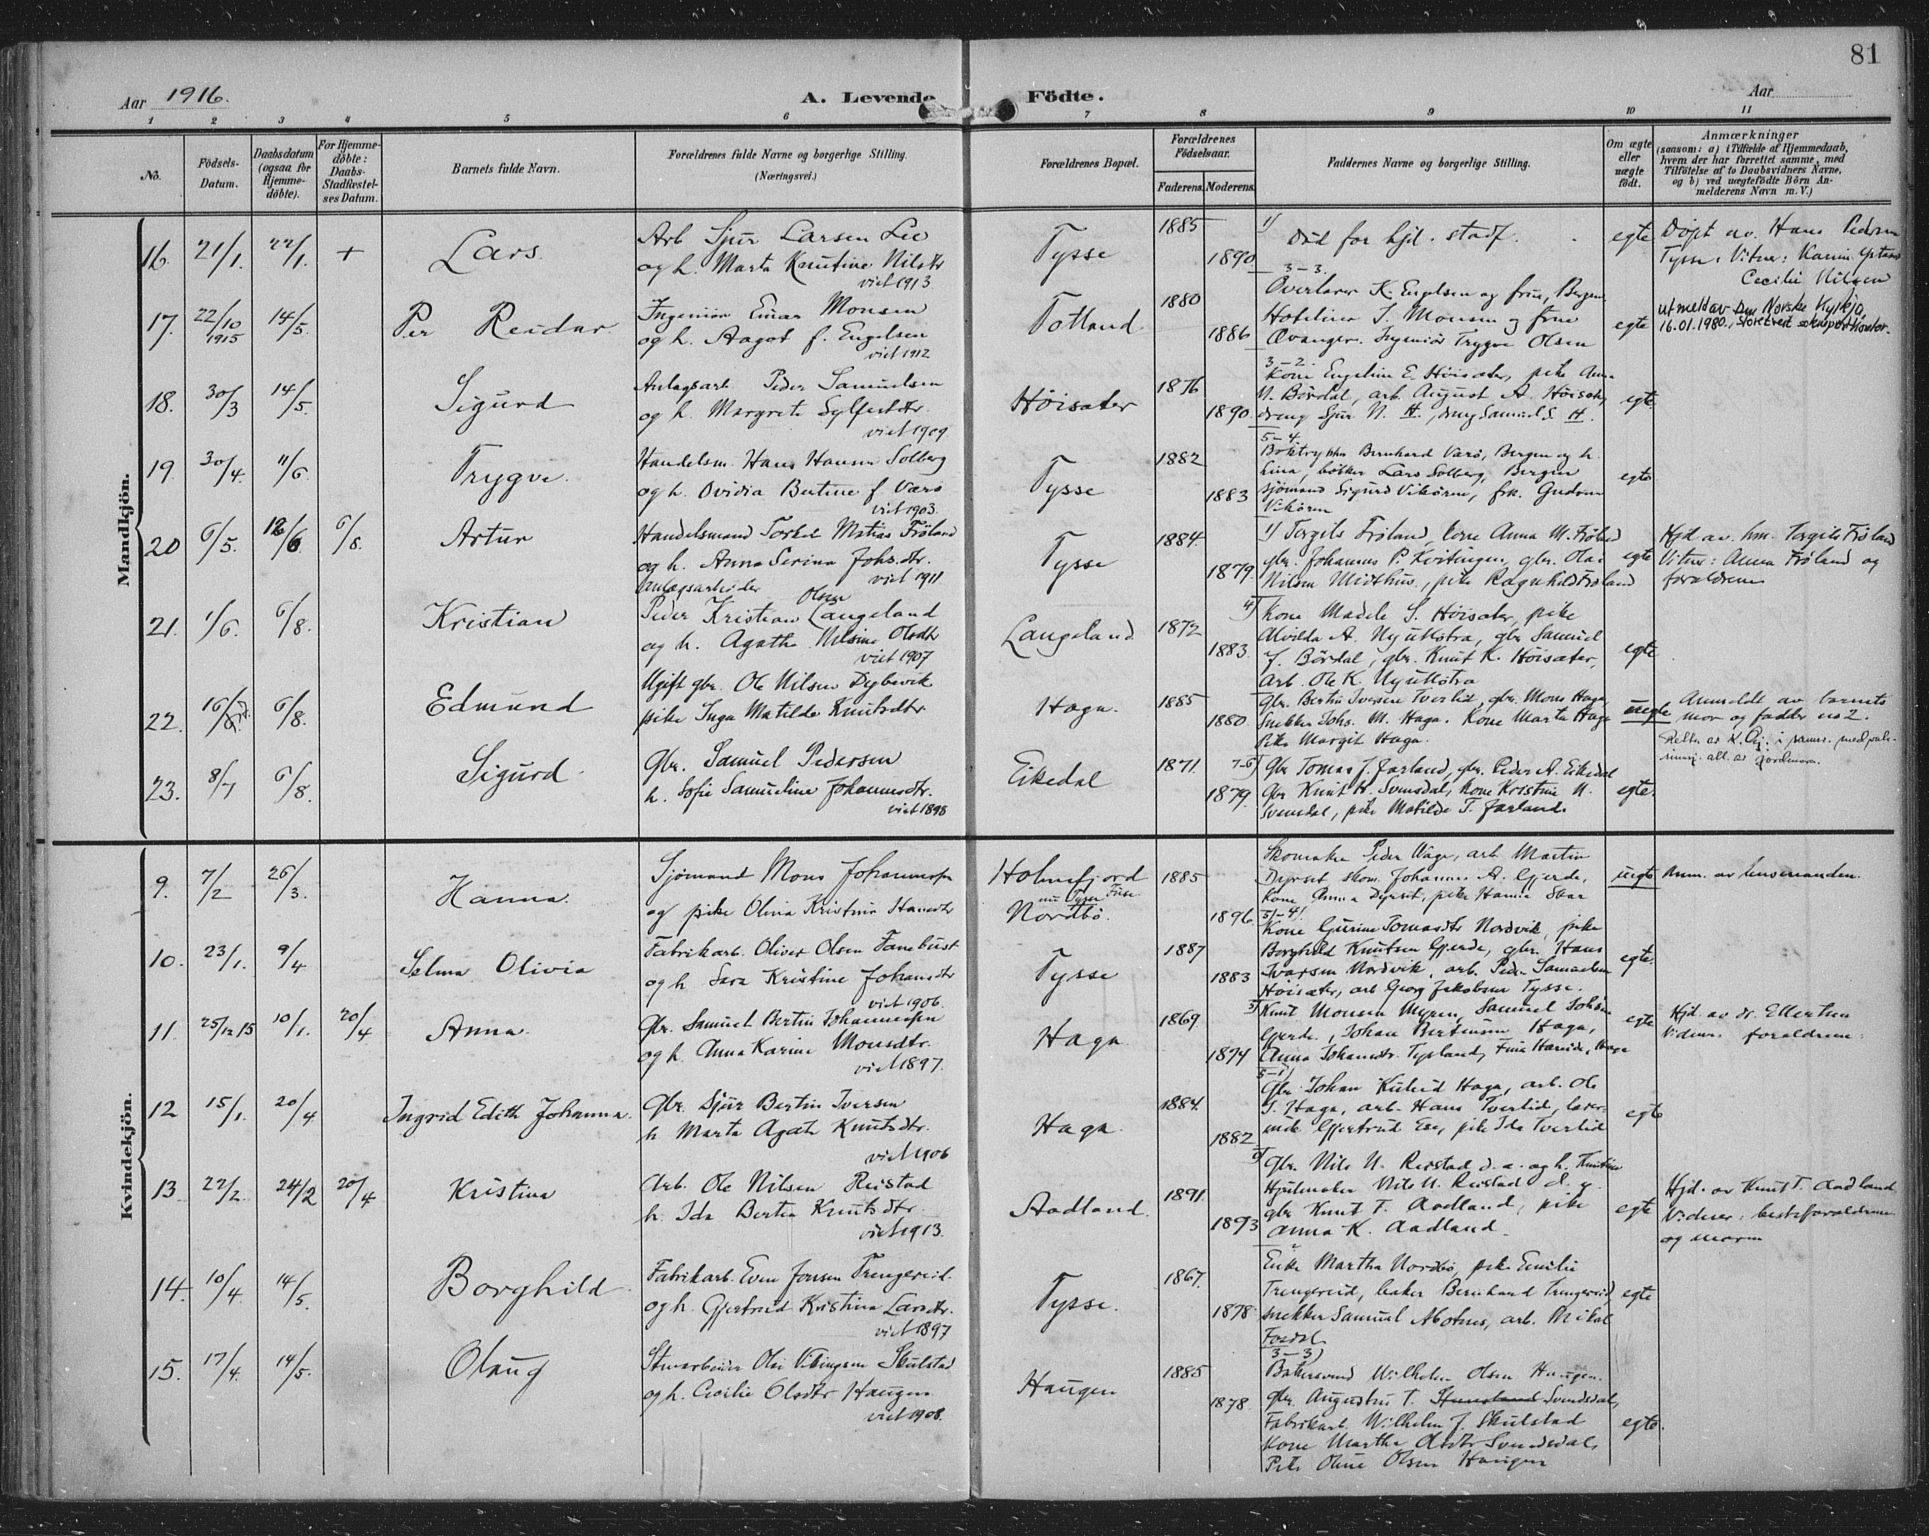 81
Aar 1916.
A. Levende Födte.
Aar
1 2 3 4 5 6 7 8 9 10 11
No.
Födsels-Datum.
Daabsdatum (ogsaa for Hjemme-döbte).
For Hjemme-döbte: Daabs-Stadfestel-ses Datum.
Barnets fulde Navn.
Forældrenes fulde Navne og borgerlige Stilling.
(Næringsvei.)
Forældrenes Bopæl.
Forældrenes Födselsaar.
Faderens.
Moderens.
Faddernes Navne og borgerlige Stilling.
Om ægte eller uægte födt.
Anmærkninger
(saasom: a) i Tilfælde af Hjemmedaab,
hvem der har forrettet samme, med
Tilföielse af to Daabsvidners Navne,
og b) ved uægtefödte Börn An-
melderens Navn m. V.)
Mandkjön.
16. 21/1. 22/1. + Lars.
Arb Sjur Larsen
og h. Marta Knutine Nilsdtr
viet 1913
Tysse 1885 1890
1) Död for hjd. stadf.
egte
Döpt av. Hans Pedersen
Tysse. Vitner: Karin
Cecilie Nilsen
17. 22/10 1915 14/5. Per Reidar
Ingeniör Einar Monsen
og h. Aagot f. Engelsen
viet 1912
Totland 1880 1886
3-3.
Overlærer K. Engelsen og frue, Bergen
Hotelier S. Monsen og frue
Evanger. Ingeniör Trygve Olsen
egte
utmeld av Den Norske Kyrkja
16.01.1980, Storetveit sokneprestkontor.
18. 30/3 14/5. Sigurd
Anlægsarb. Peder Samuelsen
og h. Margrete Sylfestdtr.
viet 1909
Höisæter 1876 1890.
3-2.
Kone Engeline E. Höisæter, pike Anna
N. Bördal, arb. August A. Höisæt,
dreng Sjur N. H., dreng Samuel S. H.
egte
19 30/4. 11/6 Trygve.
Handelsm. Hans Hansen Solberg
og h. Ovidia Bertine f. Varö
viet 1903.
Tysse 1882 1883
5-4.
Boktrykker Bernhard Varö, Bergen og h.
Lina, bökker Lars Solberg, Bergen
sjömand Sigurd Vikören, frk. Gudrun
Vikören
egte
20 6/5. 12/6 6/8. Artur
Handelsmand Torkel Matias Fröland
og h. Anna Serina Johsdtr.
viet 1911
Tysse 1884. 1879
1) Torgils Fröland, kone Anna M. Fröland
gbr. Johannes P. Kvitingen, gbr. Olai
Nilsen Midthus, pike Ragnhild Fröland
egte
Hjd av. hm. Torgils Fröland
Vitner: Anna Fröland og
forældrene
21. 1/6. 6/8. Kristian
Anlægsarbeider
Peder Kristian Olsen Langeland
og h. Agathe Nilsine Olsdtr
viet 1907
Langeland 1872 1883.
4) Kone Madele S. Höisæter, pike
Alvilda A. Nyuttstra, gbr Samuel
J. Bördal, gbr. Knut K. Höisæter,
Arb. Ole K. Nyuttstra
egte
22. 16/ 6/8. Edmund
Ugift gbr. Ole Nilsen Dybevik
pike Inga Matilde Knutsdtr.
Haga. 1885 1880
Gbr. Bertin Iversen Tverlid, gbr. Mons Haga,
snekker Johs. M. Haga. Kone Marta Haga
Pike Margit Haga.
uegte
Anmeldt av barnets
mor og fadder no 2.
23. 8/7 6/8. Sigurd.
Gbr. Samuel Pedersen
h. Sofie Samueline Johannesdtr.
viet 1898
Eikedal 1871 1879
7-6) Gbr Tomas J. Jarland, gbr. Peder A. Eikedal
Gbr Knut H. Svensdal, kone Kristine N.
Svensdal, pike Matilde T. Jarland.
egte.
Kvindekjön.
9. 7/2 26/3. Hanna.
Sjömand Mons Johannessen
og pike Olina Kristine Hansdtr
Holmefjord
nu Tysse Fuse
Nordbö. 1885 1896
Skomaker Peder Hage, arb Martin
Dyrset skom. Johannes A. Gjerde,
Kone Anna Dyrset, pike Hanna Skar
uegte
Anm. av
10. 23/1. 9/4 Selma Olivia
Fabrikarb. Oliver Olsen Fanebust
og h Sara Kristine Johansdtr
viet 1906.
Tysse 1887 1883
5-4!
Kone Gurine Tomasdtr Nordvik, pike
Borghild Knutsen Gjerde, gbr. Hans
Ivarsen Nordvik, arb. Peder Samuelsen
Höisæter, arb Georg Jakobsen Tysse.
egte.
11. 25/12 15 10/1. 20/4 Anna.
Gbr. Samuel Bertin Johannessen
og h. Anna Karine Monsdtr.
viet 1897.
Haga 1869 1874
3) Knut Monsen Myren, Samuel Johan
Gjerde, Johan Bertinsen Haga,
Anna Johansdtr. Tysland,
egte
Hjd av dr. Ellertsen
Vidner. forældrene.
12 15/1. 20/4 Ingrid Edith Johanna.
Gbr. Sjur Bertin Iversen
h Marta Agate Knutsdtr.
viet 1906
Haga 1884. 1882
5-1)
Gbr. Johan Haga, arb. Ole
S. Haga, arb. Hans Tverlid, lærer-
inde Gjertrud Eie, pike Ida Tverlid
egte
13. 22/2. 24/2 20/4 Kristina
Arb. Ole Nilsen Reistad
h. Ida Bertea Knutsdtr.
viet 1913.
Aadland. 1891. 1893
Gbr. Nils N. Reistad d. æ. og h. Knutine
Hjulmaker Nils N. Reistad d. y.
gbr Knut T. Aadland, pike
Anna K. Aadland.
egte
Hjd. av Knut T. Aadland
Vidner: besteforældrene
og moren
14. 10/4. 14/5. Borghild.
Fabrikarb. Even Jonsen Trengereid.
og h. Gjertrud Kristina Larsdtr.
viet 1897
Tysse. 1867. 1878
Enke Martha Nordbö, pike Emilie
Trengereid, baker Bernhard Trengereid,
snekker Samuel Abotnes, arb. Mikal
egte
15. 17/4. 14/5. Olaug
Olai Vikingsen Skulstad
og h. Cecilie Olsdtr Haugen
viet 1908.
Haugen 1885 1878.
3-3)
Bakersvend Wilhelm Olsen Haugen.
gbr. Augustin T. Svendsdal,
Fabrikarb. Wilhelm J. Skulstad
Kone Martha Olsdtr Svendsdal,
Pike Oline Olsen Haugen
egte.